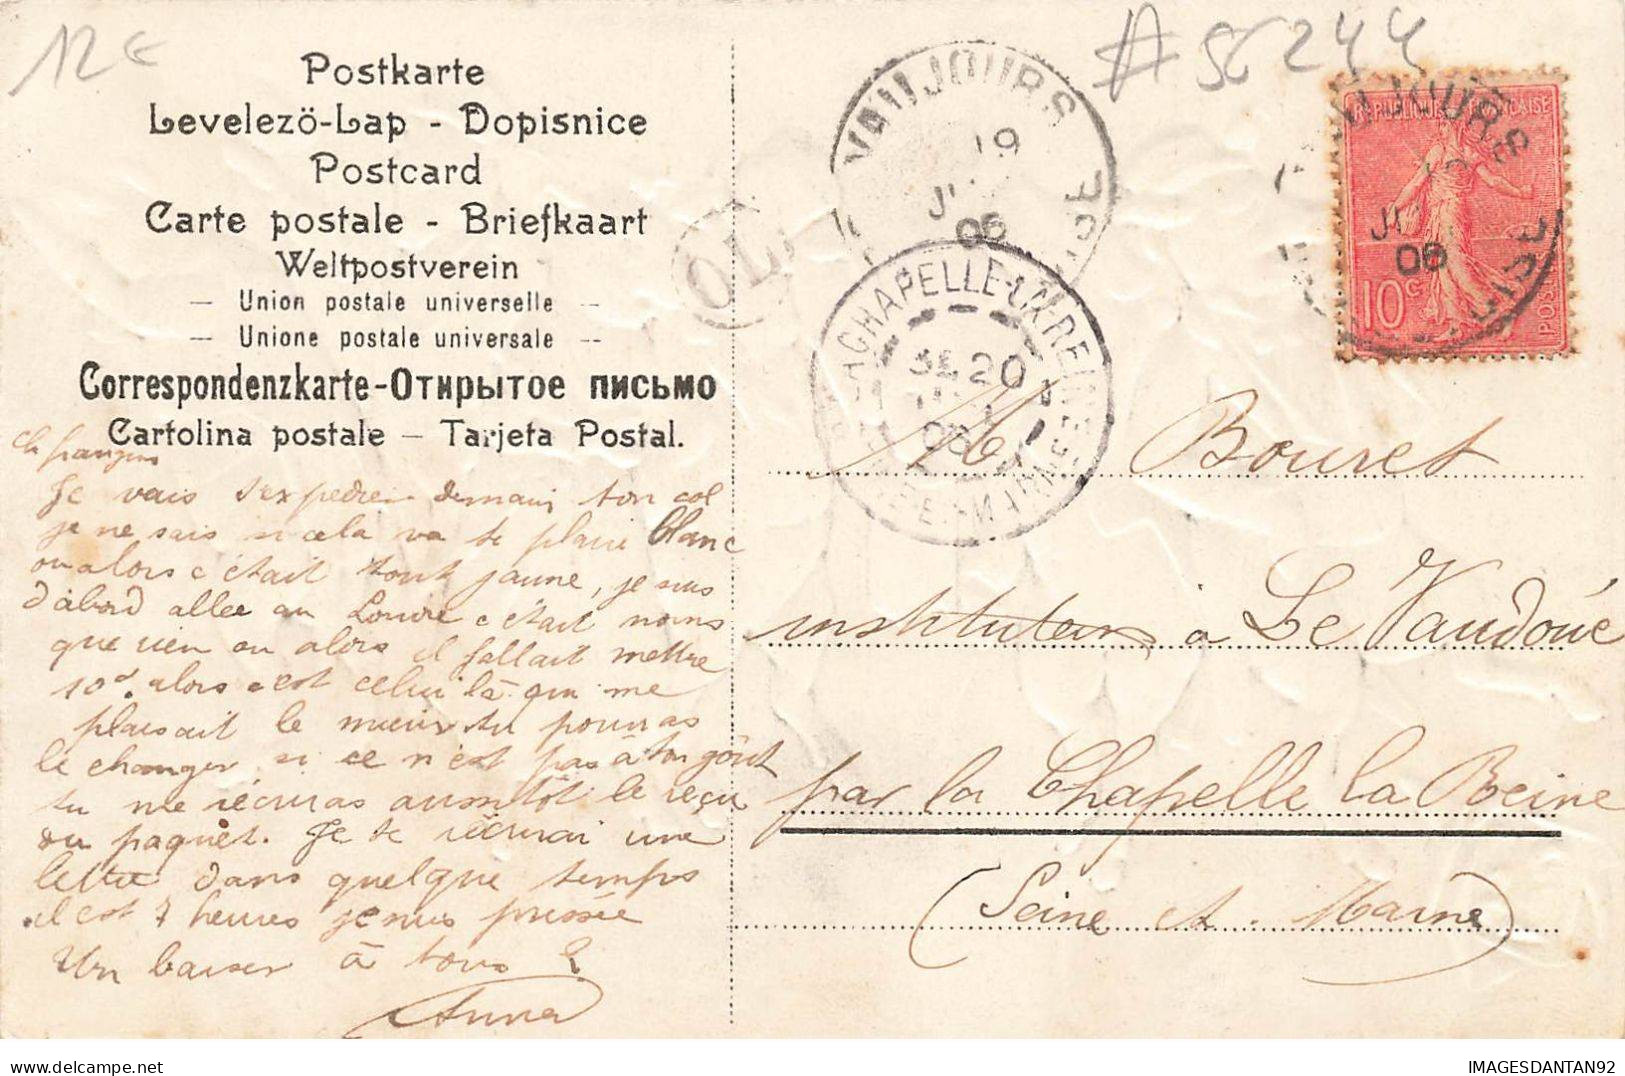 12€
#SC244
Postkarte
Levelezö-Lap - Dopisnice
Postcard
Carte postale - Briefkaart
Weltpostverein
- Union postale universelle -
- Unione postale universale -
Correspondenzkarte-Отирытое письмо
Cartolina postale - Tarjeta Postal.
VAUJOURS
19
06
OISE
OL
LA CHAPELLE-LA-REINE
SEINE-ET-MARNE
20
06
VAUJOURS
06
REPUBLIQUE FRANÇAISE
10c
POSTES
ch frangin
Je vais t'expedier demain ton col
je ne sais si cela va te plaire blanc
ou alors c'était tout jaune, je suis
d'abord allée au Louvre c'était moins
que rien ou alors il fallait mettre
10d. alors c'est celui là qui me
plaisait le mieux tu pourras
le changer si ce n'est pas à ton goût
tu me récriras aussitôt le reçu
du paquet. Je te récrirai une
lettre dans quelque temps
il est 7 heures je suis pressée
Un baiser à tous
Anna
M Bouret
instituteur à Le Vaudoué
par la Chapelle la Reine
(Seine et Marne)
IMAGESDANTAN92